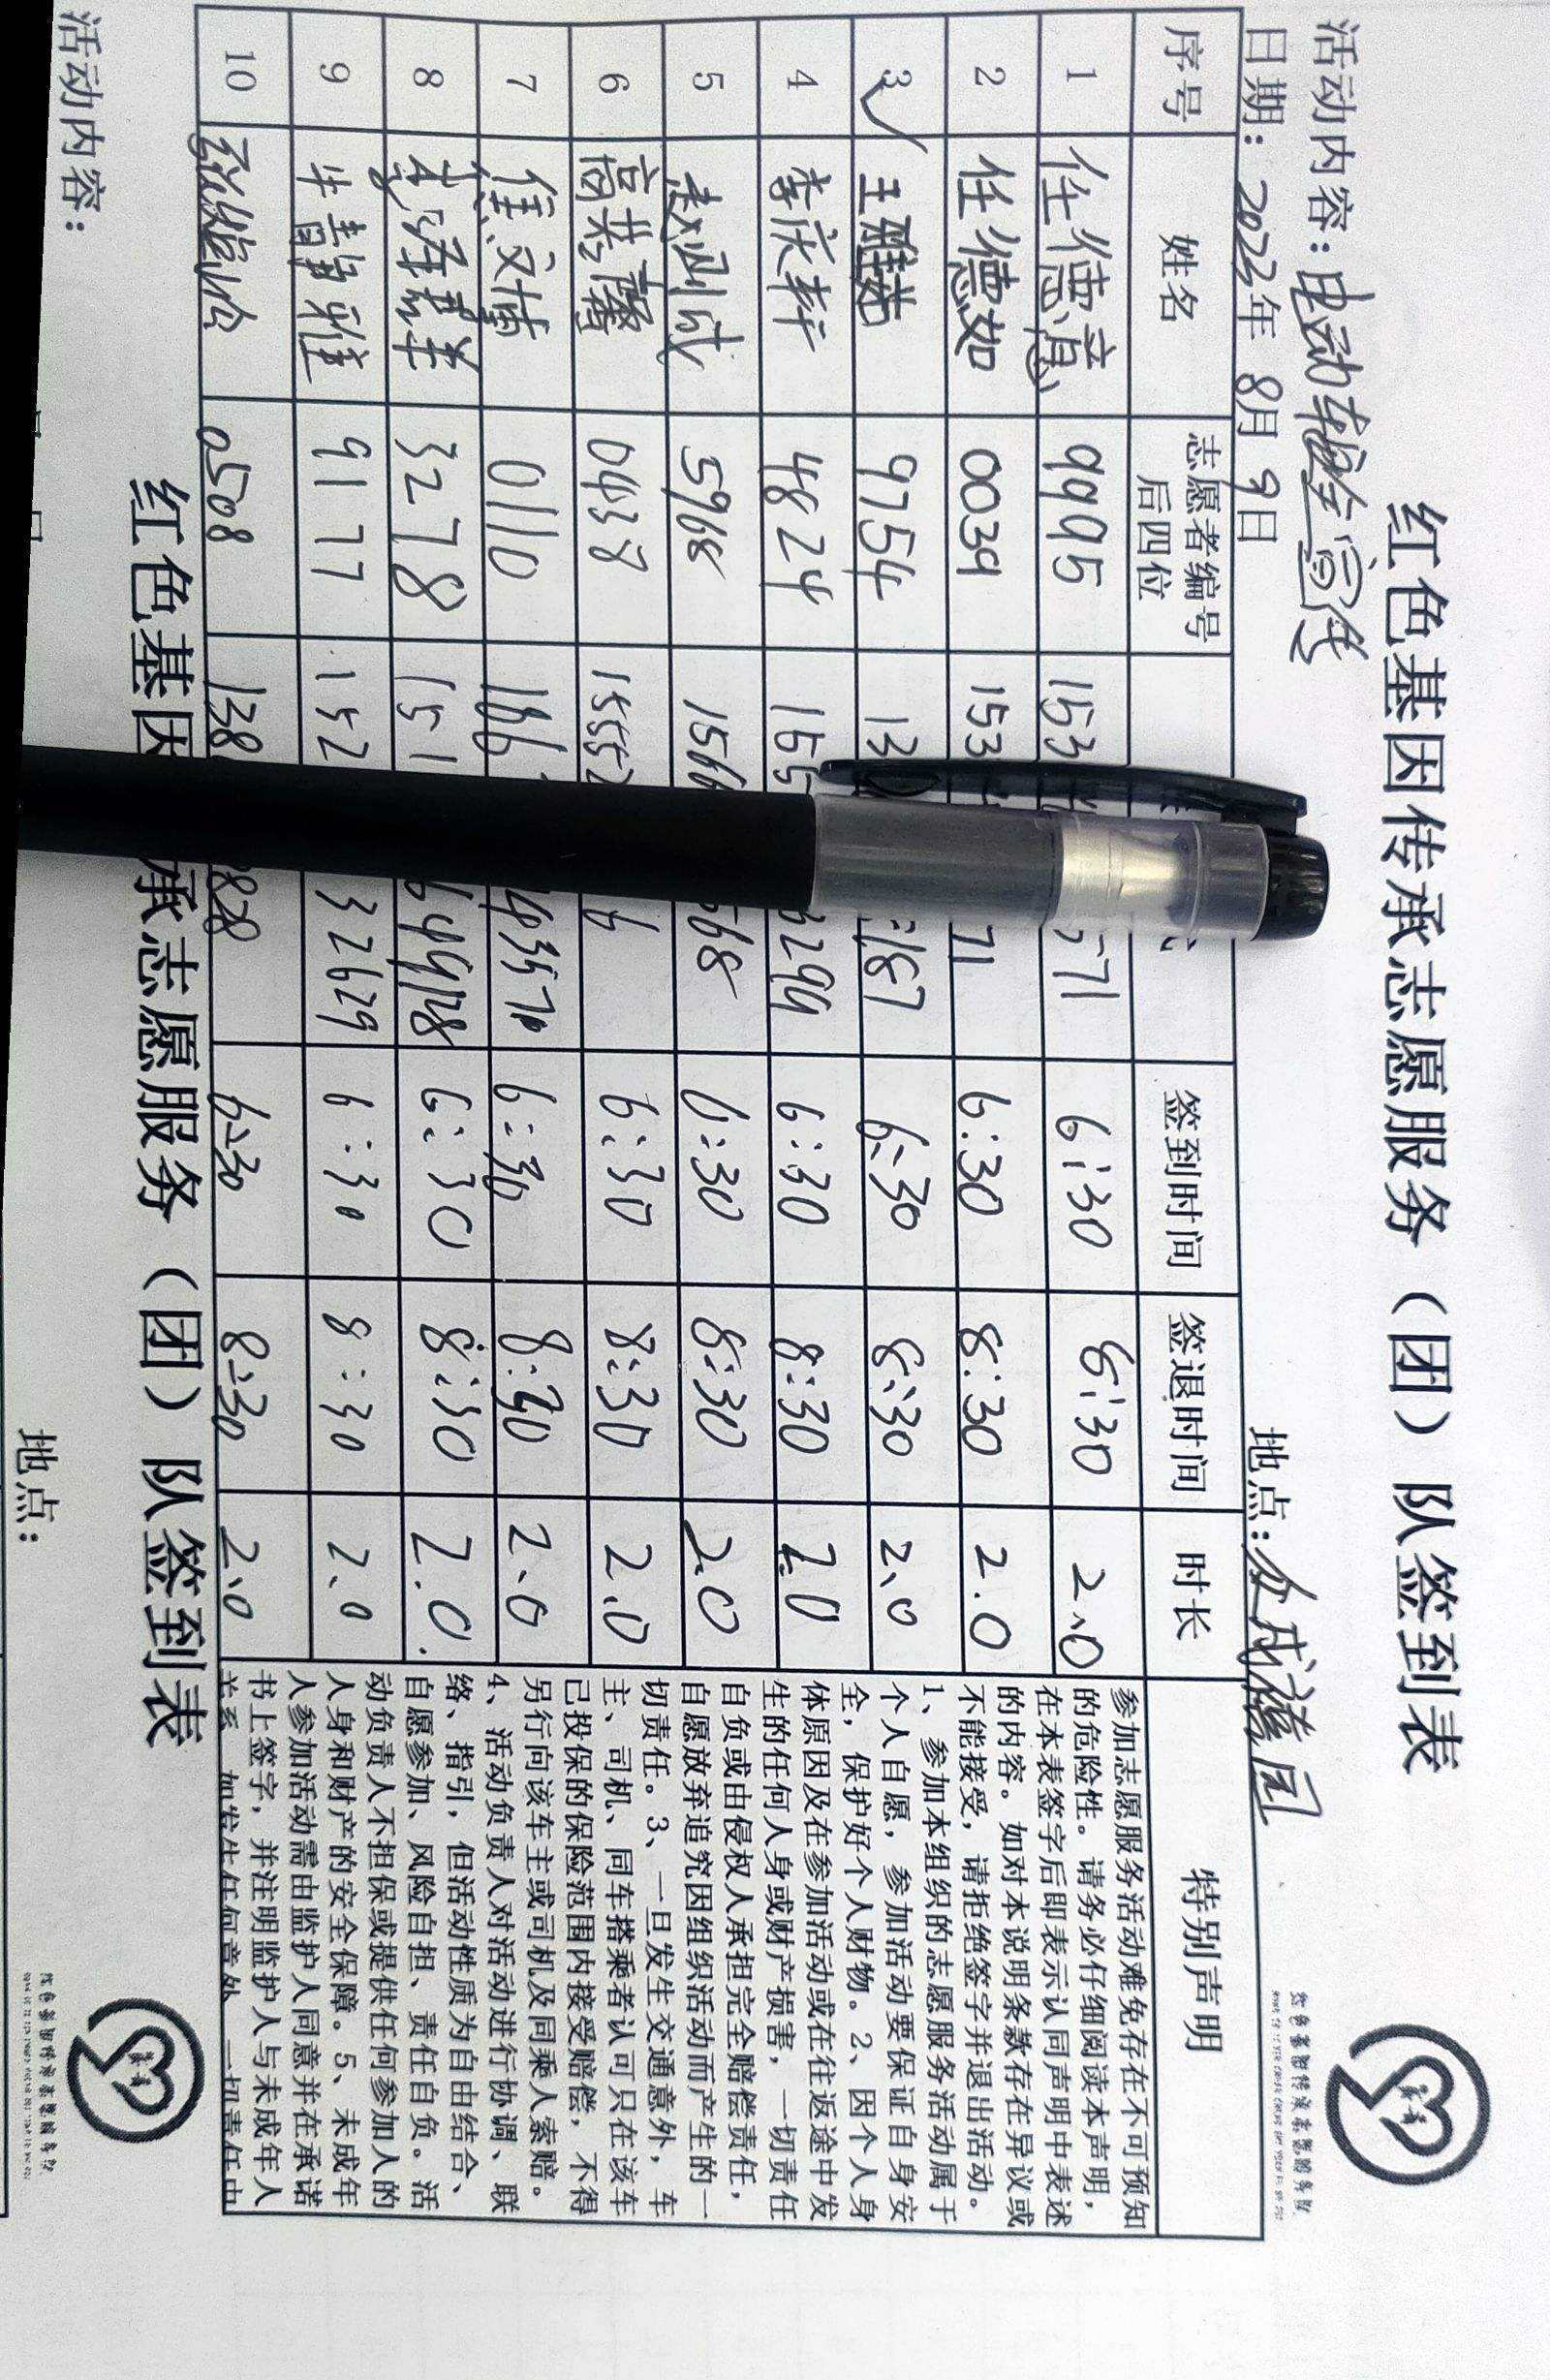 红色基因传承志愿服务（团）队签到表
活动内容：电动车安全宣传
日期：2023年 8月 9日 地点：众成嘉园
序号 姓名 志愿者编号后四位 签到时间 签退时间 时长 特别声明
1 任德意 9995 153 571 6:30 8:30 2.0
2 任德如 0039 153 71 6:30 8:30 2.0
3 王雅茹 9754 13 187 6:30 8:30 2.0
4 李庆轩 4824 155 3294 6:30 8:30 2.0
5 赵涵斌 5968 1566 568 6:30 8:30 2.0
6 高英馨 0438 15552 6 6:30 8:30 2.0
7 0110 166 6:30 8:30 2.0
8 3278 151 6:30 8:30 2.0
9 牛静雅 9177 152 32629 6:30 8:30 2.0
10 0508 138 828 6:30 8:30 2.0
参加志愿服务活动难免存在不可预知
的危险性。请务必仔细阅读本声明，
在本表签字后即表示认同声明中表述
的内容。如对本说明条款存在异议或
不能接受，请拒绝签字并退出活动。
1、参加本组织的志愿服务活动属于
个人自愿，参加活动要保证自身安
全，保护好个人财物。2、因个人身
体原因及在参加活动或在往返途中发
生的任何人身或财产损害，一切责任
自负或由侵权人承担完全赔偿责任，
自愿放弃追究因组织活动而产生的一
切责任。3、一旦发生交通意外，车
主、司机、同车搭乘者认可只在该车
已投保的保险范围内接受赔偿，不得
另行向该车主或司机及同乘人索赔。
4、活动负责人对活动进行协调、联
络、指引，但活动性质为自由结合、
自愿参加、风险自担、责任自负。活
动负责人不担保或提供任何参加人的
人身和财产的安全保障。5、未成年
人参加活动需由监护人同意并在承诺
书上签字，并注明监护人与未成年人
关系，如发生任何意外，一切责任由
红色基因承志愿服务（团）队签到表
活动内容：
地点：